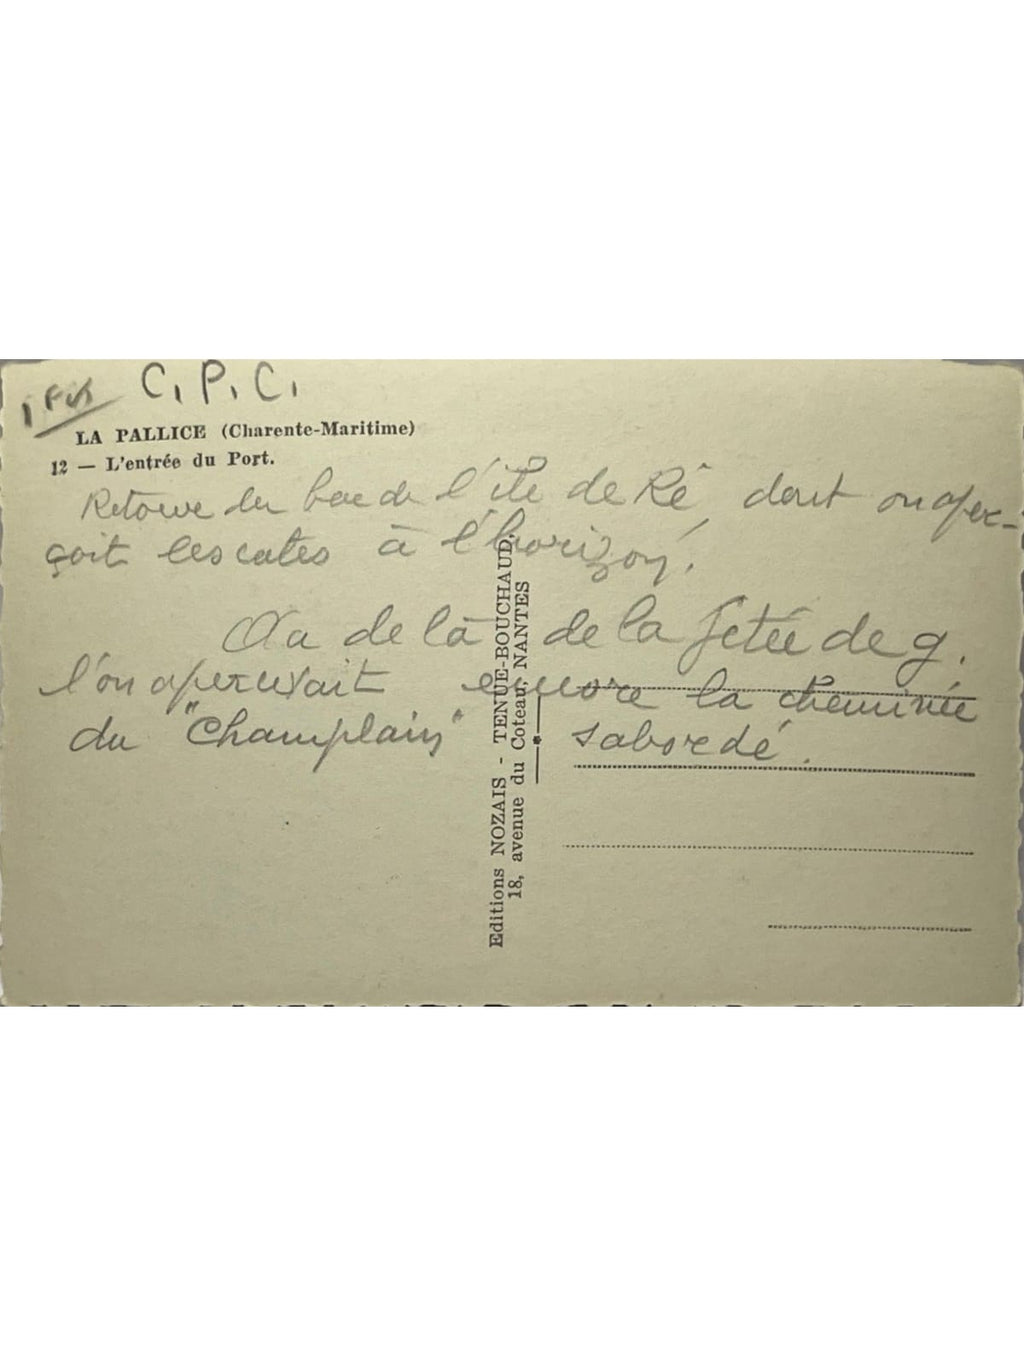 C. P. C.
LA PALLICE (Charente-Maritime)
12 — L'entrée du Port.
Retour du bac de l'île de Ré dont on aper-
çoit les cotes à l'horizon.
Au delà de la jetée de g.
l'on apercevait encore la cheminée
du "Champlain" sabordé.
Editions NOZAIS - TENUE-BOUCHAUD,
18, avenue du Coteau, NANTES